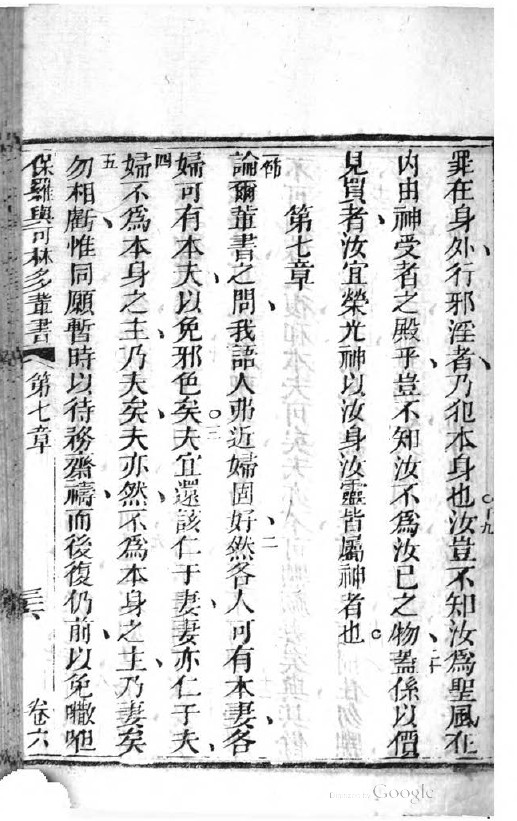 罪在身外行邪淫者乃犯本身也○十九汝豈不知汝為聖風在
內由神受者之殿乎豈不知汝不為汝己之物二十蓋係以價
見買者汝宜榮光神以汝身汝靈皆屬神者也
第七章
一節論爾輩書之問我語人弗近婦固好二然各人可有本妻各
婦可有本夫以免邪色矣○三夫宜還該仁于妻妻亦仁于夫
四婦不為本身之主乃夫矣夫亦然不為本身之主乃妻矣
五勿相虧惟同願暫時以待務齋禱而後復仍前以免
保羅與可林多輩書 第七章 三六 卷六
Google